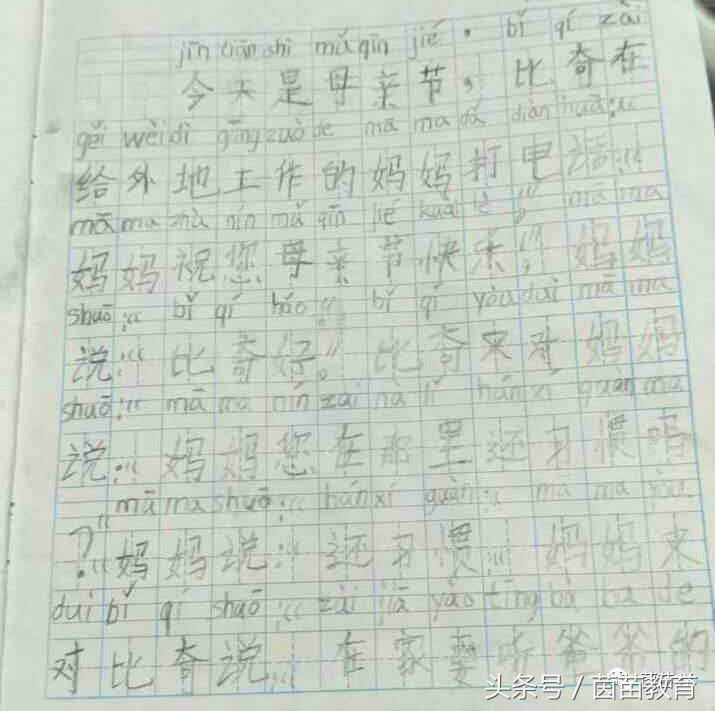 jīn tiān shì mǔ qīn jié , bǐ qí zài
今天是母亲节，比奇在
gěi wèi dì gōng zuò de mā ma dǎ diàn huà :“
给外地工作的妈妈打电话:“
mā ma zhù nín mǔ qīn jié kuài lè ！” mā ma
妈妈祝您母亲节快乐！”，妈妈
shuō :“ bǐ qí hǎo 。” bǐ qí yòu duì mā ma
说:“比奇好。”比奇又对妈妈
shuō :“ mā ma nín zài nà lǐ hán xí guàn ma
说:“妈妈您在那里还习惯吗
mā ma shuō :“ hán xí guàn ” mā ma yòu
？”妈妈说:“还习惯”妈妈又
duì bǐ qí shuō :“ zài jiā yào tīng bà ba de
对比奇说:在家要听爸爸的
头条号 / 茵苗教育